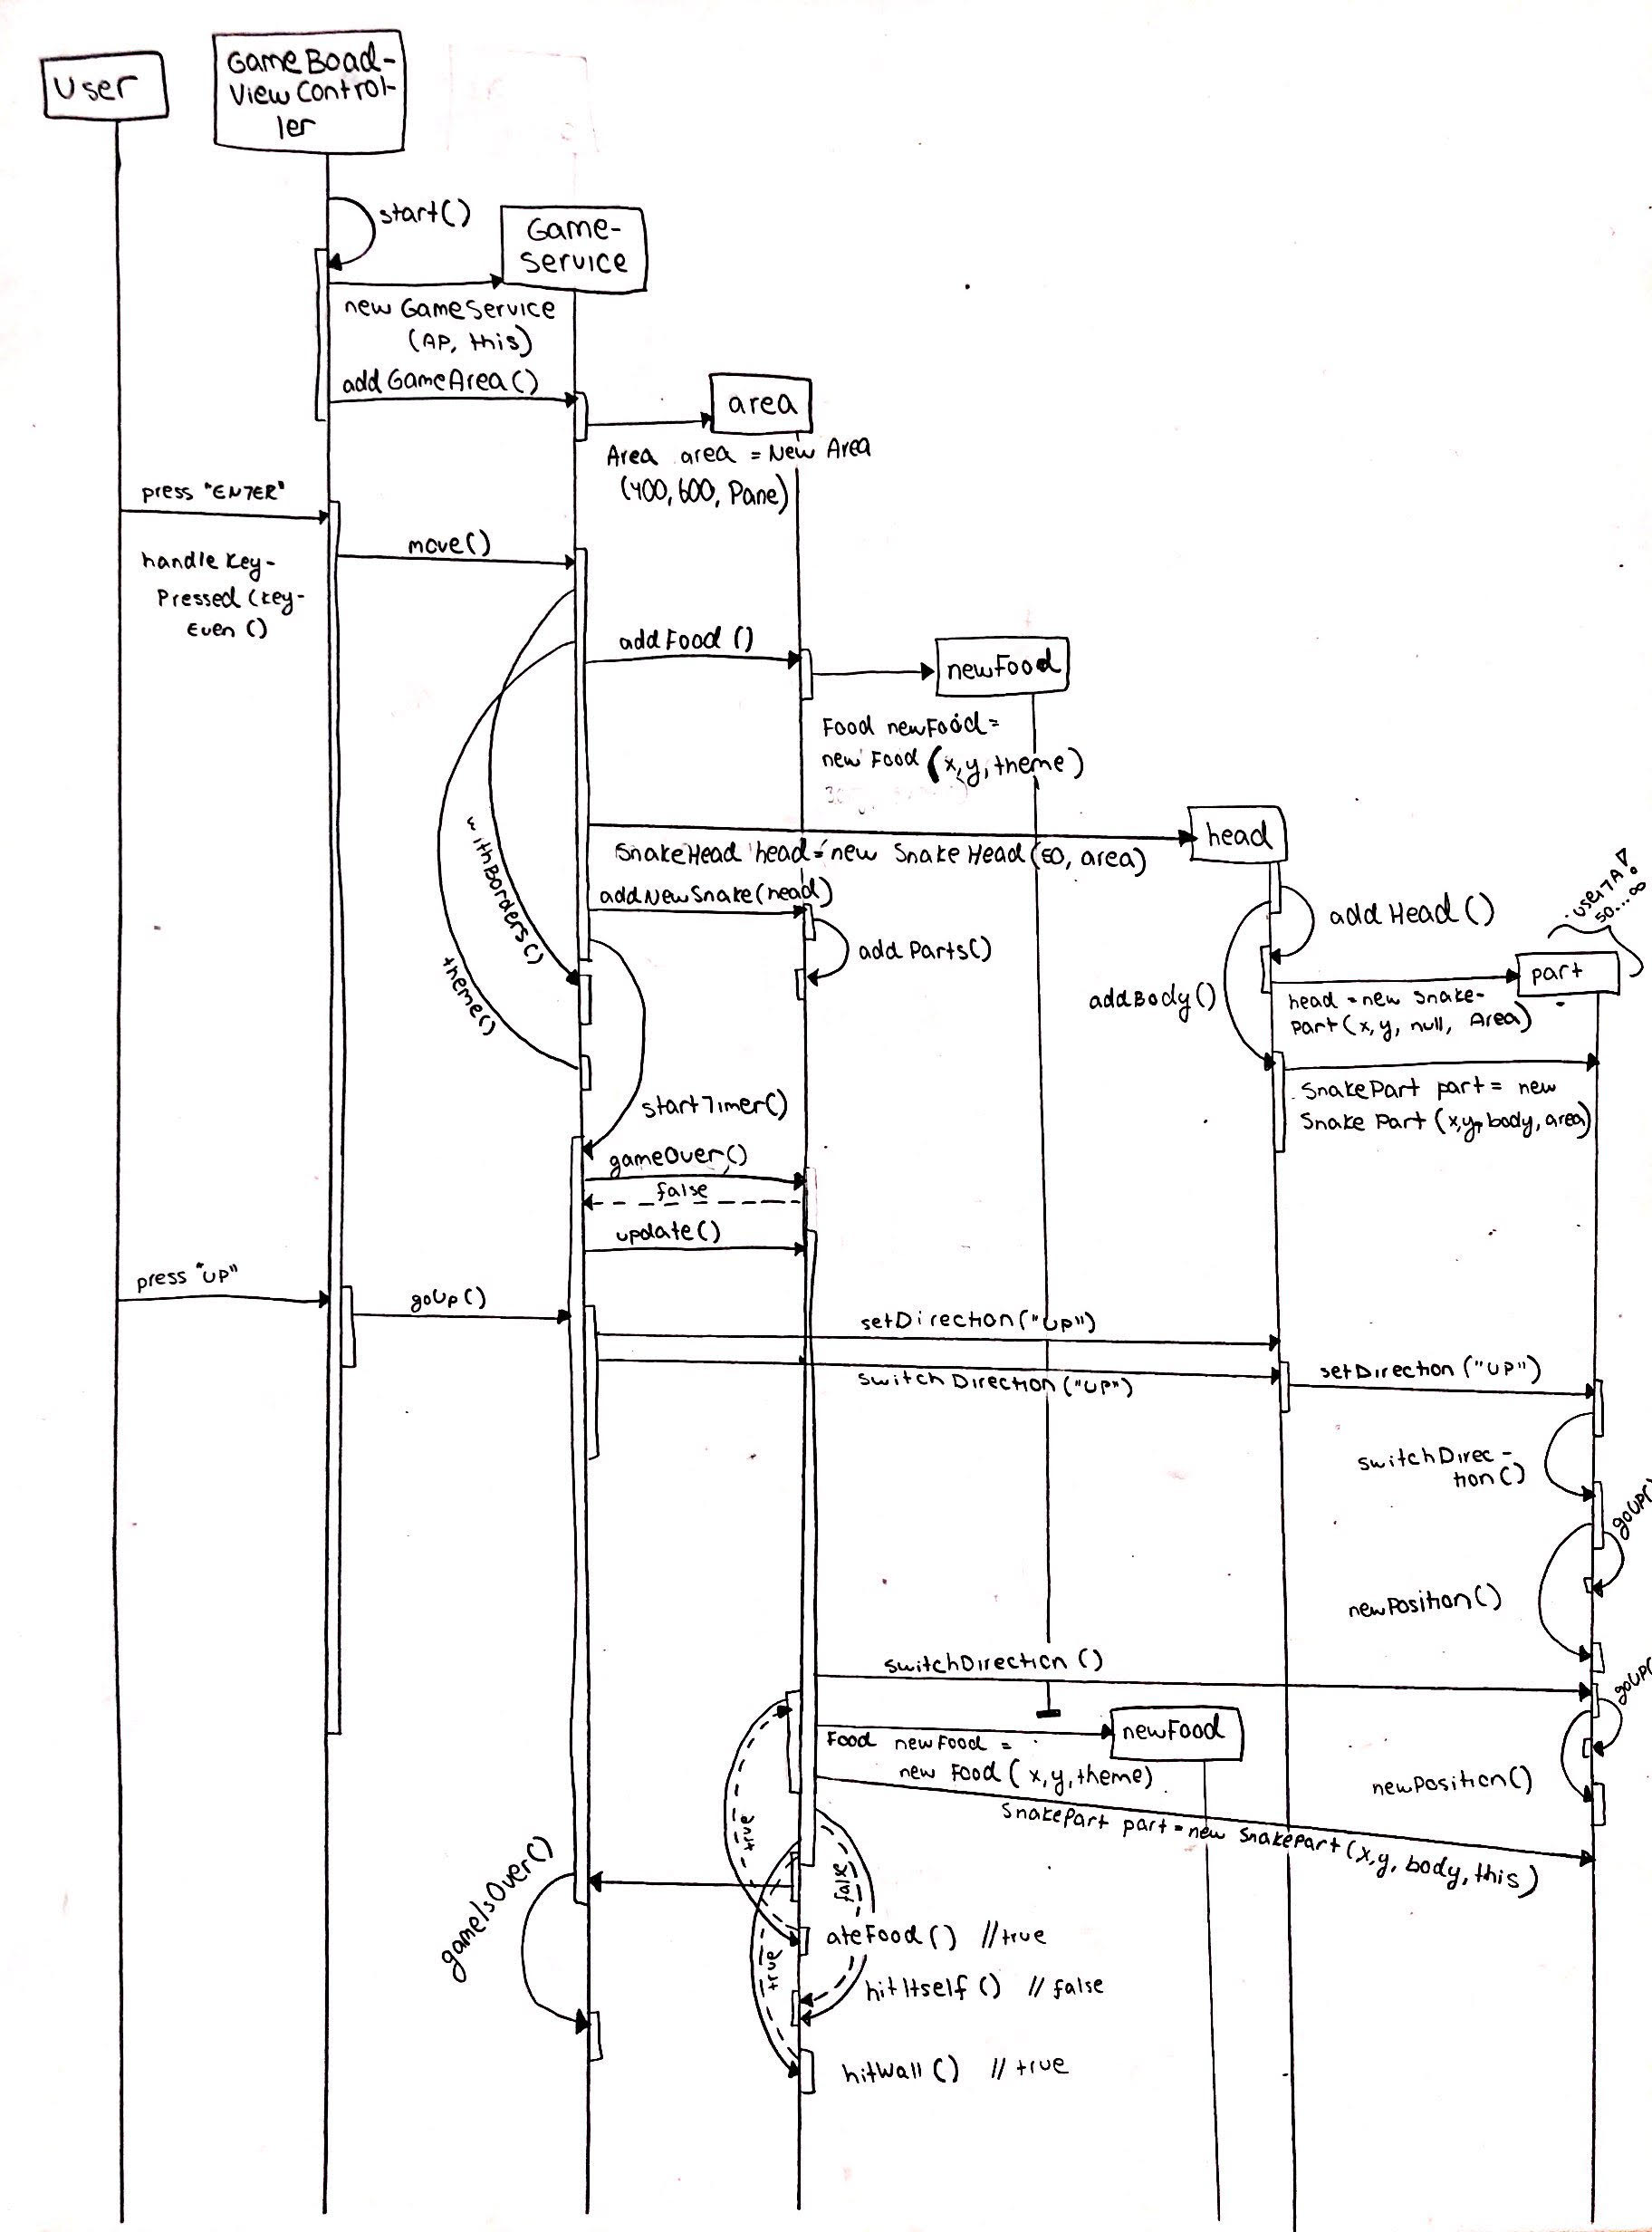 User
GameBoad-
View Control-
ler
start()
Game-
Service
new GameService
(AP, this)
addGameArea()
area
Area area = New Area
(400, 600, Pane)
press "ENTER"
handle Key-
Pressed (Key-
Even ()
move()
addFood ()
newFood
Food newFood =
new Food (x,y, theme)
withBorders()
theme()
head
SnakeHead head = new SnakeHead (50, area)
addNewSnake(head)
add Parts()
add Head ()
addBody()
50...∞
part
head = new Snake-
Part (x, y, null, Area)
SnakePart part = new
Snake Part (x,y, body, area)
startTimer()
gameOver()
false
update()
press "UP"
goUp()
setDirection("Up")
switch Direction ("UP")
setDirection ("UP")
switchDirec-
tion()
goUP()
newPosition()
switchDirection ()
goUP()
newFood
Food newFood =
new Food (x,y,theme)
newPosition()
SnakePart part = new SnakePart (x,y, body, this)
true
false
gameIsOver()
ateFood() //true
true
hitItself () // false
hitWall () // true